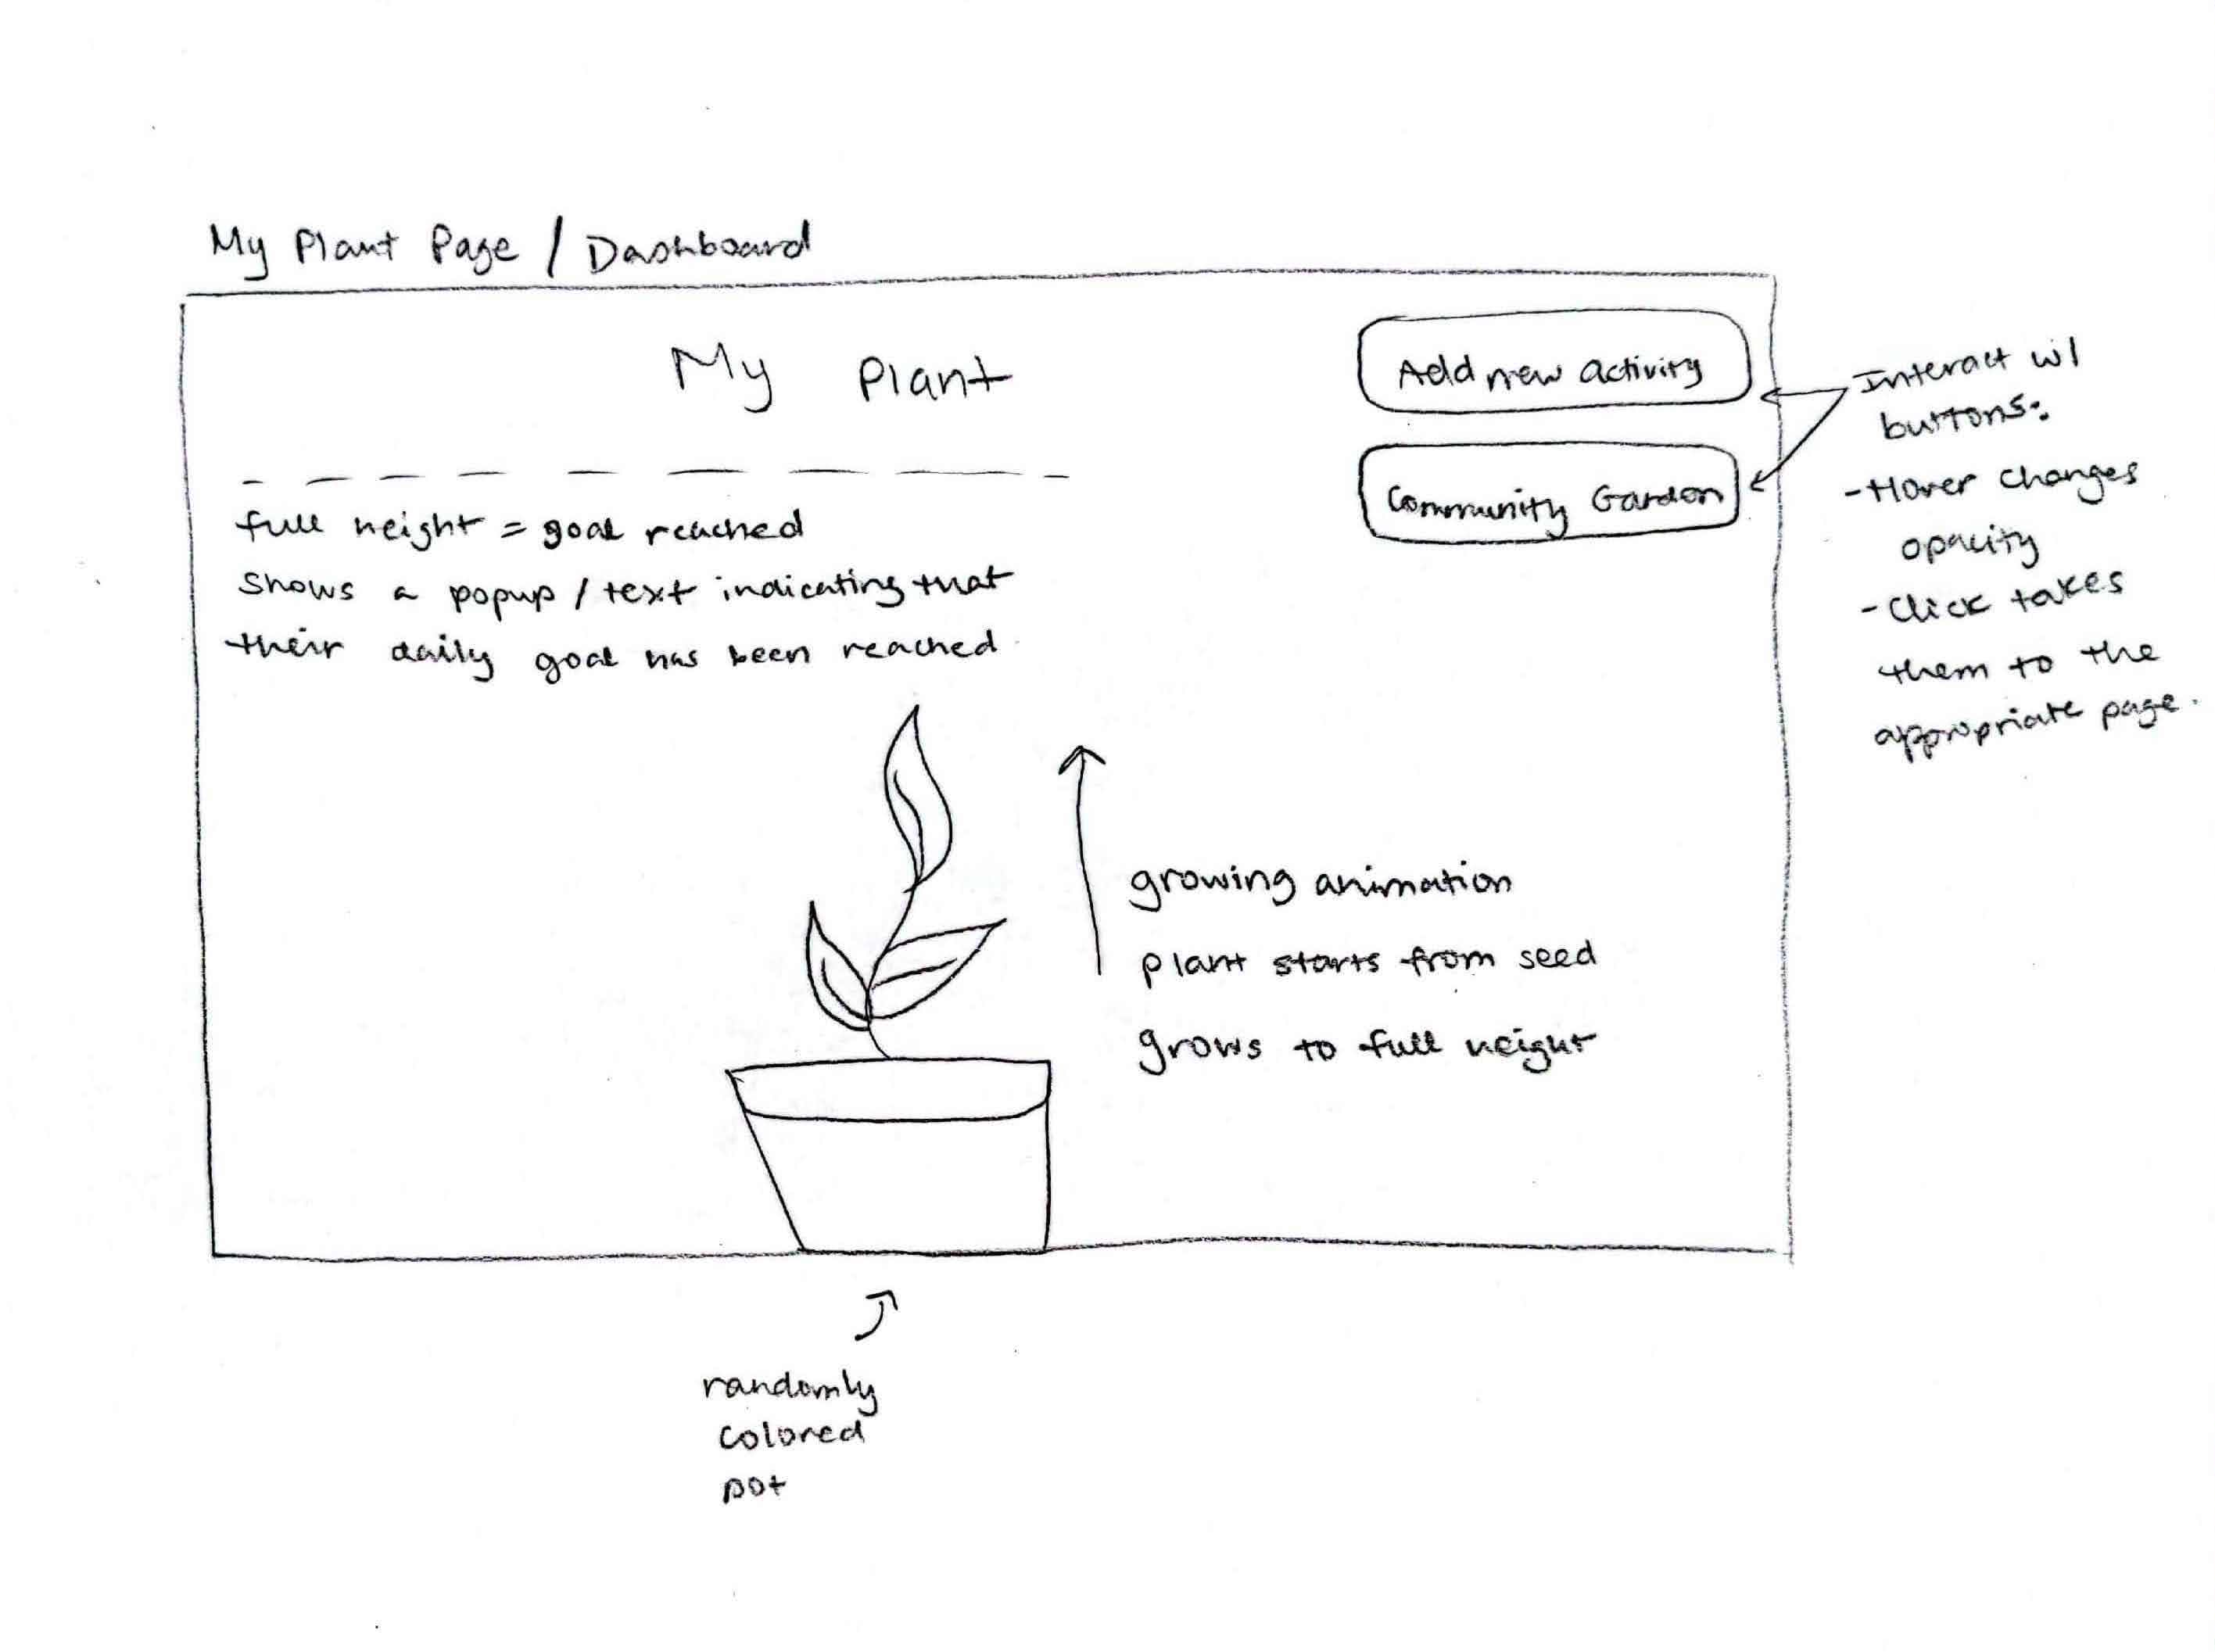 My Plant Page / Dashboard
My Plant
Add new activity
Community Garden
Interact w/
buttons:
- Hover changes
opacity
- Click takes
them to the
appropriate page.
full height = goal reached
shows a popup / text indicating that
their daily goal has been reached
growing animation
plant starts from seed
grows to full height
randomly
colored
pot